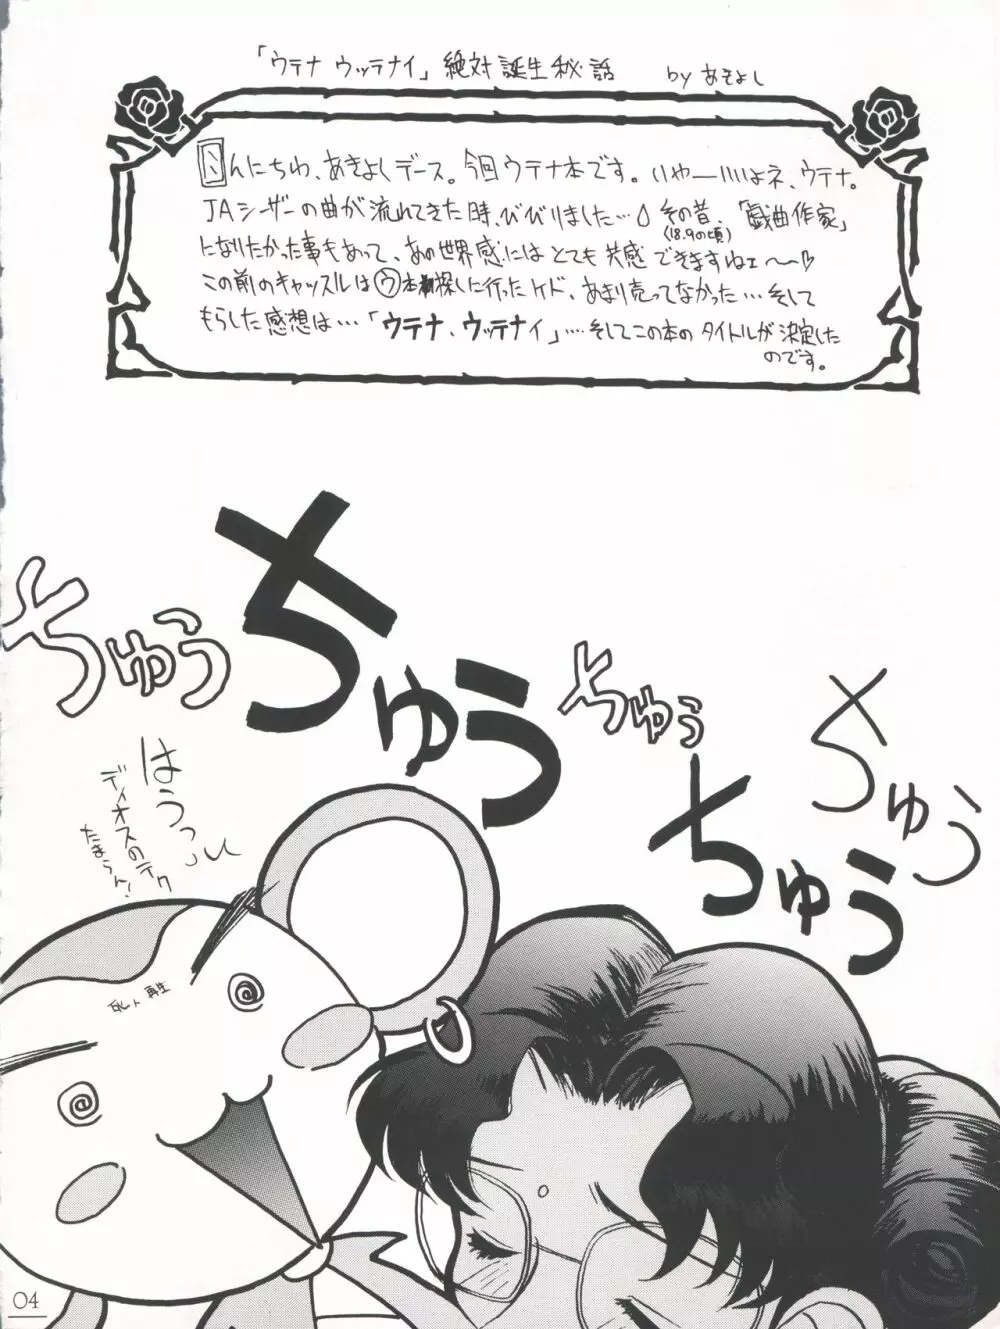 「ウテナ ウッテナイ」絶対誕生秘話 by あきよし
こんにちわ、あきよしデース。今回ウテナ本です。いやーいいよネ、ウテナ。
JAシーザーの曲が流れてきた時、びびりました… その昔、「戯曲作家」
(18.9の頃)
になりたかった事もあって、あの世界感にはとても共感できますねェ〜〜♡
この前のキャッスルはウ本探しに行ったケド、あまり売ってなかった…そして
もらした感想は…「ウテナ、ウッテナイ」…そしてこの本のタイトルが決定した
のです。
ちゅう
ちゅう
ちゅう
ちゅう
ちゅう
はうっ
ディオスのテク
たまらん!
再生
04